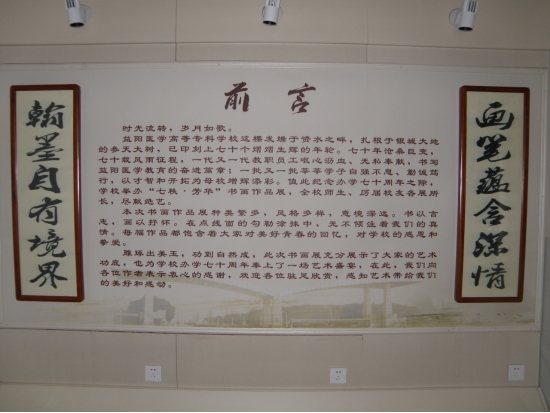 前言
时光流转，岁月如歌。
益阳医学高等专科学校这棵发端于资水之畔，扎根于银城大地
的参天大树，已印刻上七十个熠熠生辉的年轮。七十年沧桑巨变，
七十载风雨征程，一代又一代教职员工呕心沥血、无私奉献，书写
益阳医学教育的奋进篇章；一批又一批莘莘学子自强不息、勤诚笃
行，以才智和开拓为母校增辉添彩。值此纪念办学七十周年之际，
学校举办“七秩·芳华”书画作品展，全校师生、历届校友各展所
长，尽献绝艺。
本次书画作品展种类繁多，风格多样，意境深远。书以言
志，画以抒怀。在点线面的勾勒涂抹中，无不倾注着我们的真
情。每幅作品都饱含着大家对美好青春的回忆，对学校的感恩和
挚爱。
雕琢出美玉，功到自然成，此次书画展充分展示了大家的艺术
功底，也为学校办学七十周年奉上了一场艺术盛宴，在此，我们向
各位作者表示衷心的感谢，欢迎各位驻足欣赏，感知艺术带给我们
的美好和感动。
翰墨自有境界
画笔蕴含深情